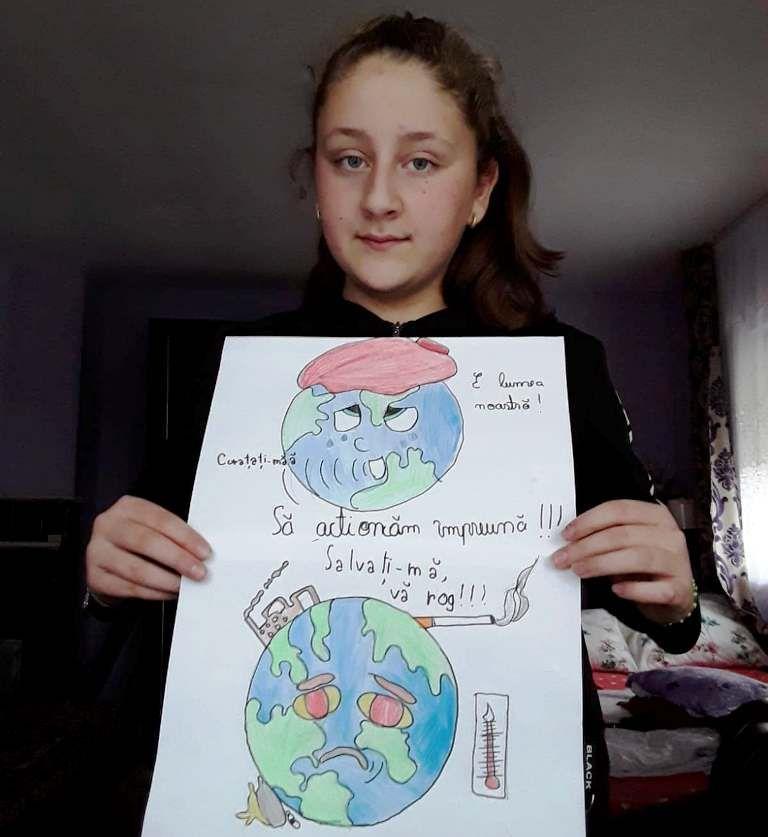 E lumea
noastră!
Curățați-măă
Să acționăm împreună!!!
Salvați-mă,
vă rog!!!
BLACK